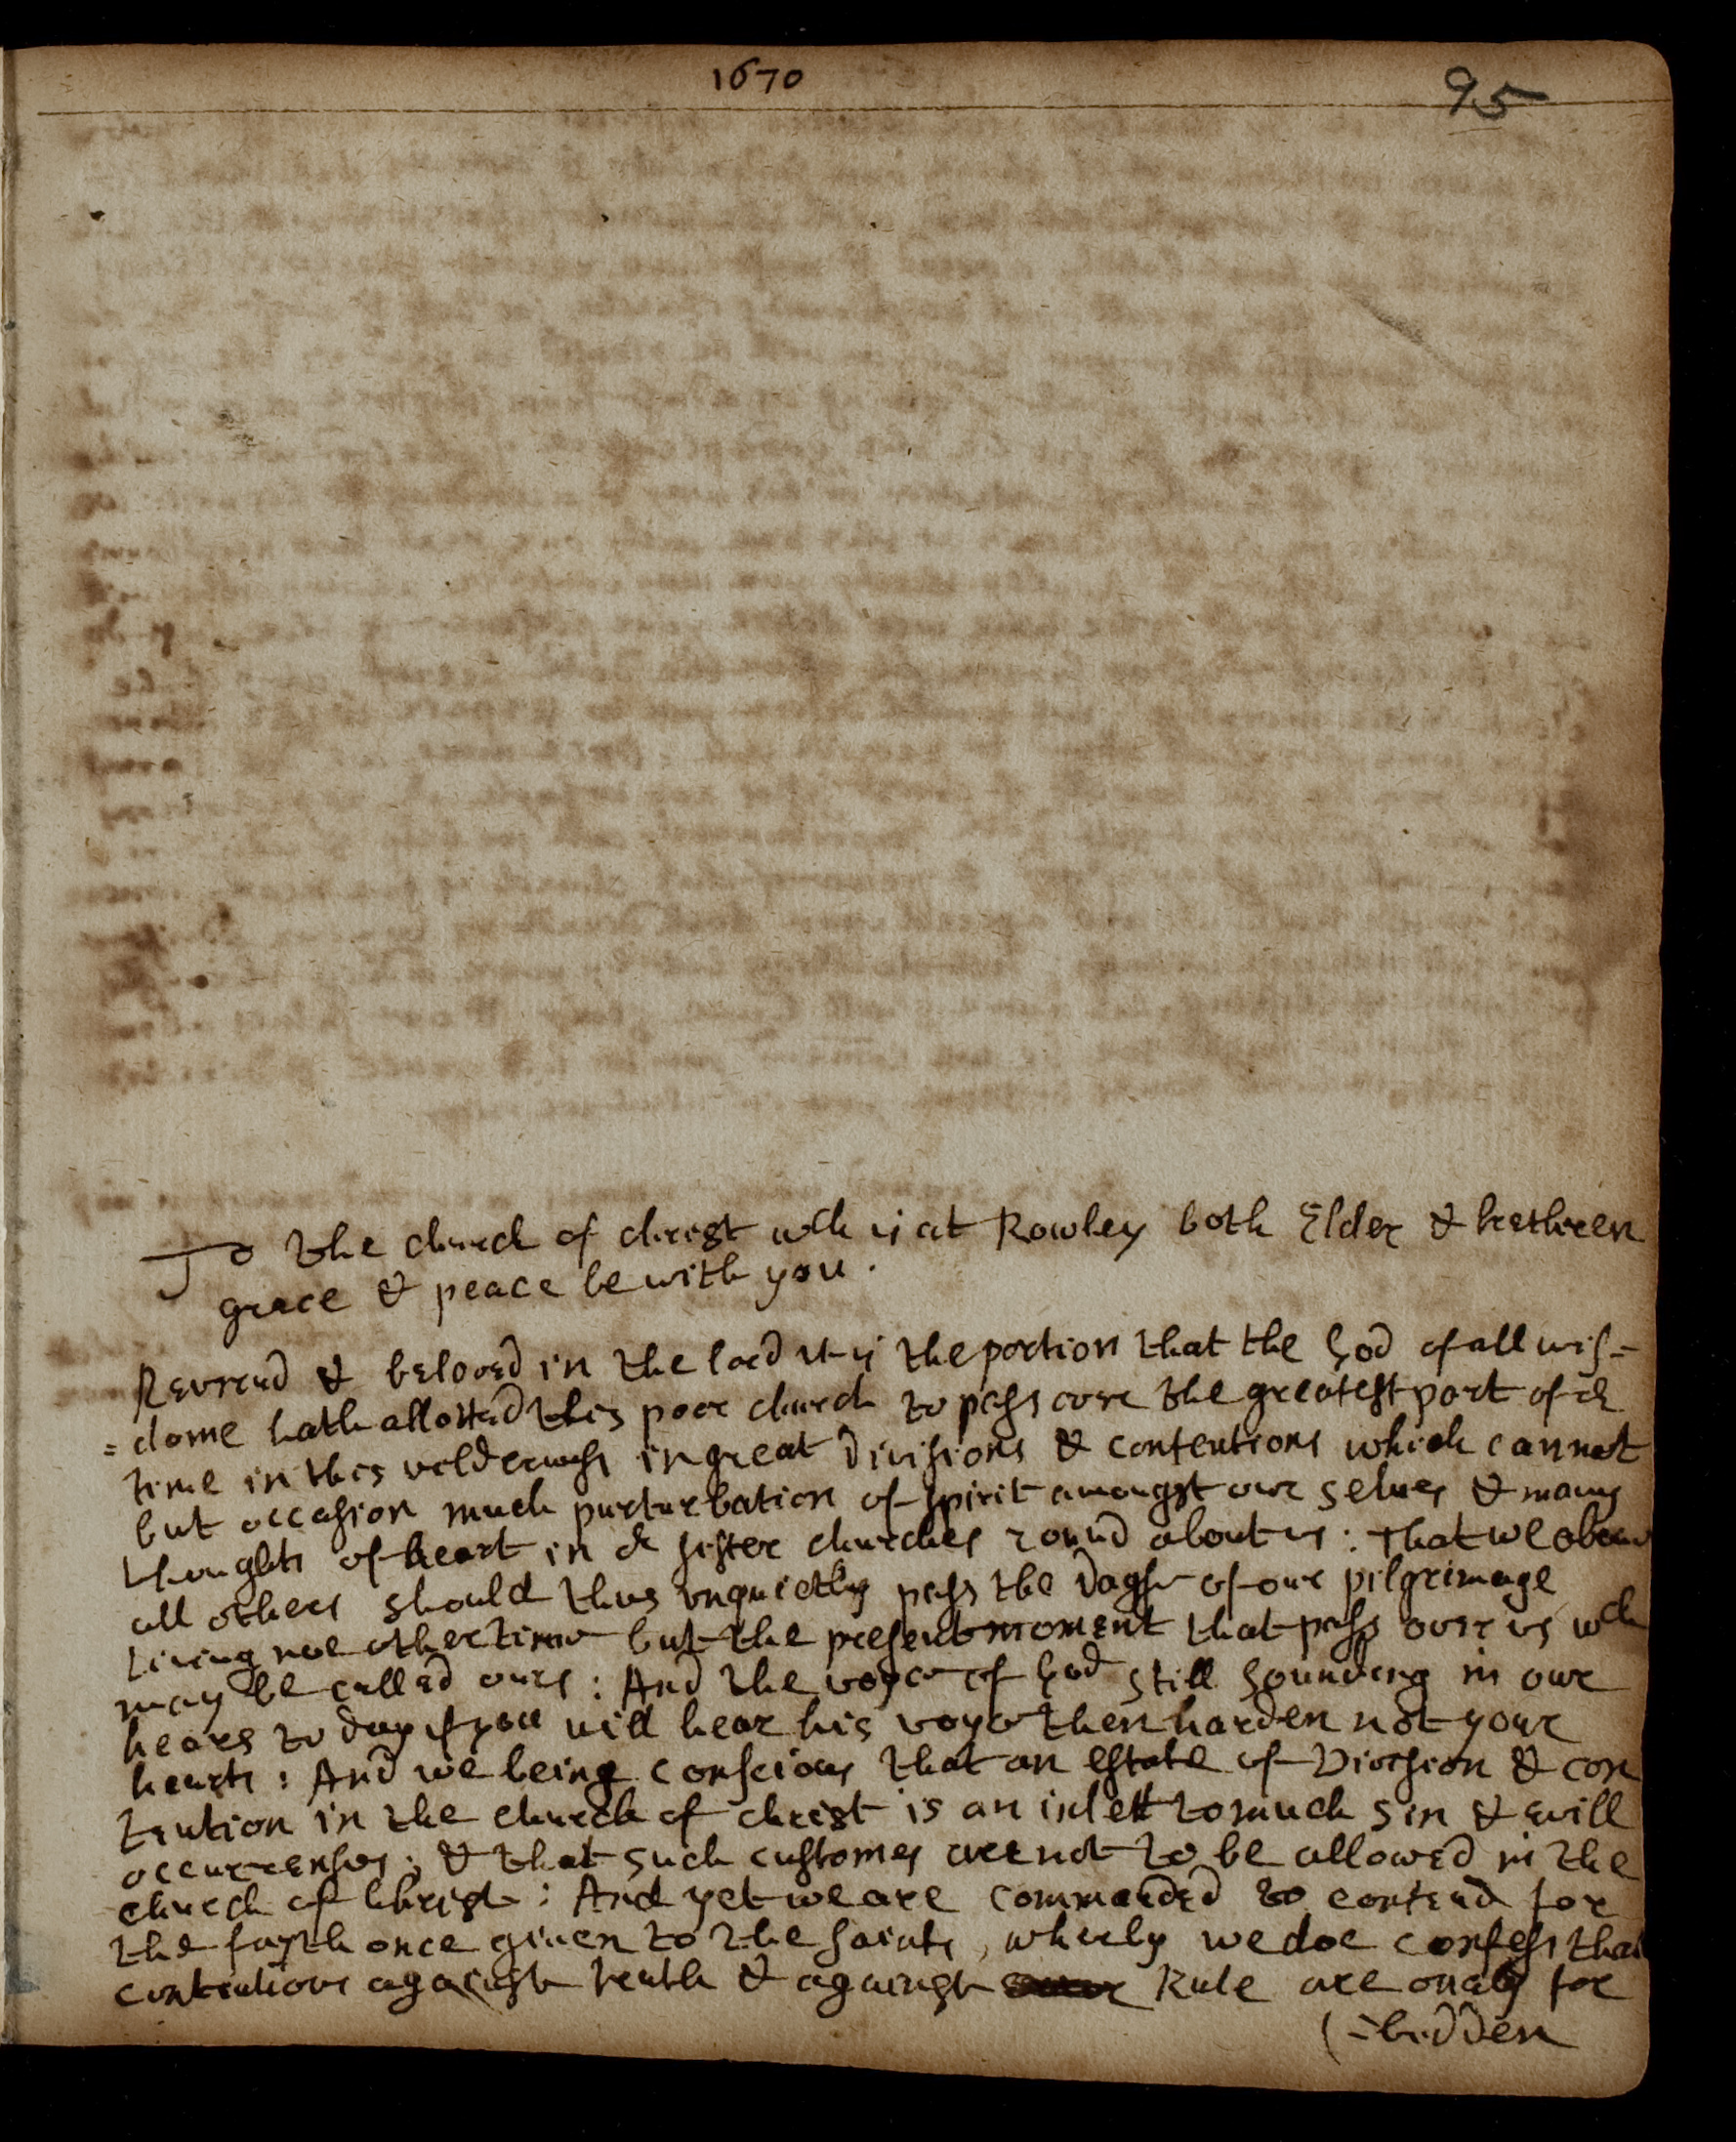 1670
95
To the church of christ wch is at Rowley both Elder & brethren
grace & peace be with you .
Revrend & beloved in the lord it is the portion that the God of all wis=
=dome hath allotted this poor church to pass over the greatest part of
time in this in great Divisions & contentions which cannot
but occasion much purturbation of spirit amongst our selves & many
thoughts of heart in sister churches round about us : that we above
all others should thus unquietly pass the of our pilgrimage
Living noe other time but the present moment that pass over us wch
may be called ours : And the voyce of God still sounding in our
heares to day if you will hear his voyce then harden not your
hearts : And we being conscious that an estate of Division & con
tention in the church of christ is an inlett to much sin & evill
occurrenses ; & that such customes are not to be allowed in the
church of christ : And yet we are commanded to contend for
the fayth once given to the saints , wherby we doe confess that
contentions against truth & against Rule are onely for
(=bidden